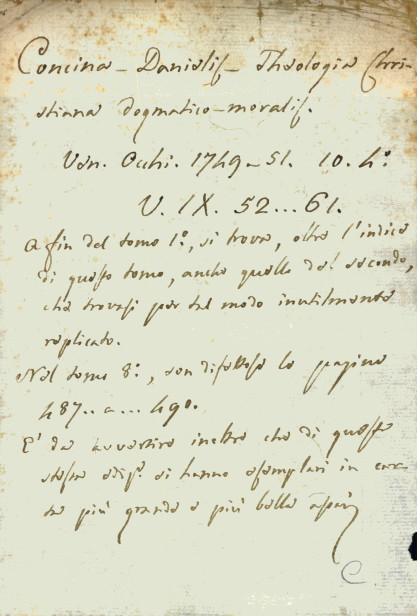 Concina - Danielis - Theologia Chri-
stiana Dogmatico-moralis.
Ven. Occhi. 1749-51. 10. 4°.
V. IX. 52...61.
A fin del tomo 1°., si trova, oltre l'indice
di questo tomo, anche quello del secondo,
che trovasi per tal modo inutilmente
replicato.
Nel tomo 8°., son difettose le pagine
487..a...490.
E' da avvertire inoltre che di questa
stessa ediz.e si hanno esemplari in car-
ta più grande e più bella
C